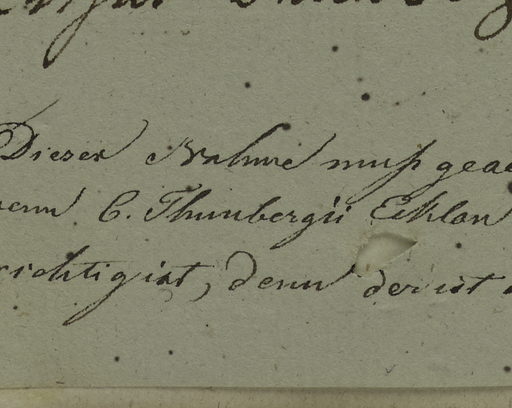 Dieser Nahme muß geae
wenn C. Thunbergii Ecklon
richtig ist, denn der ist